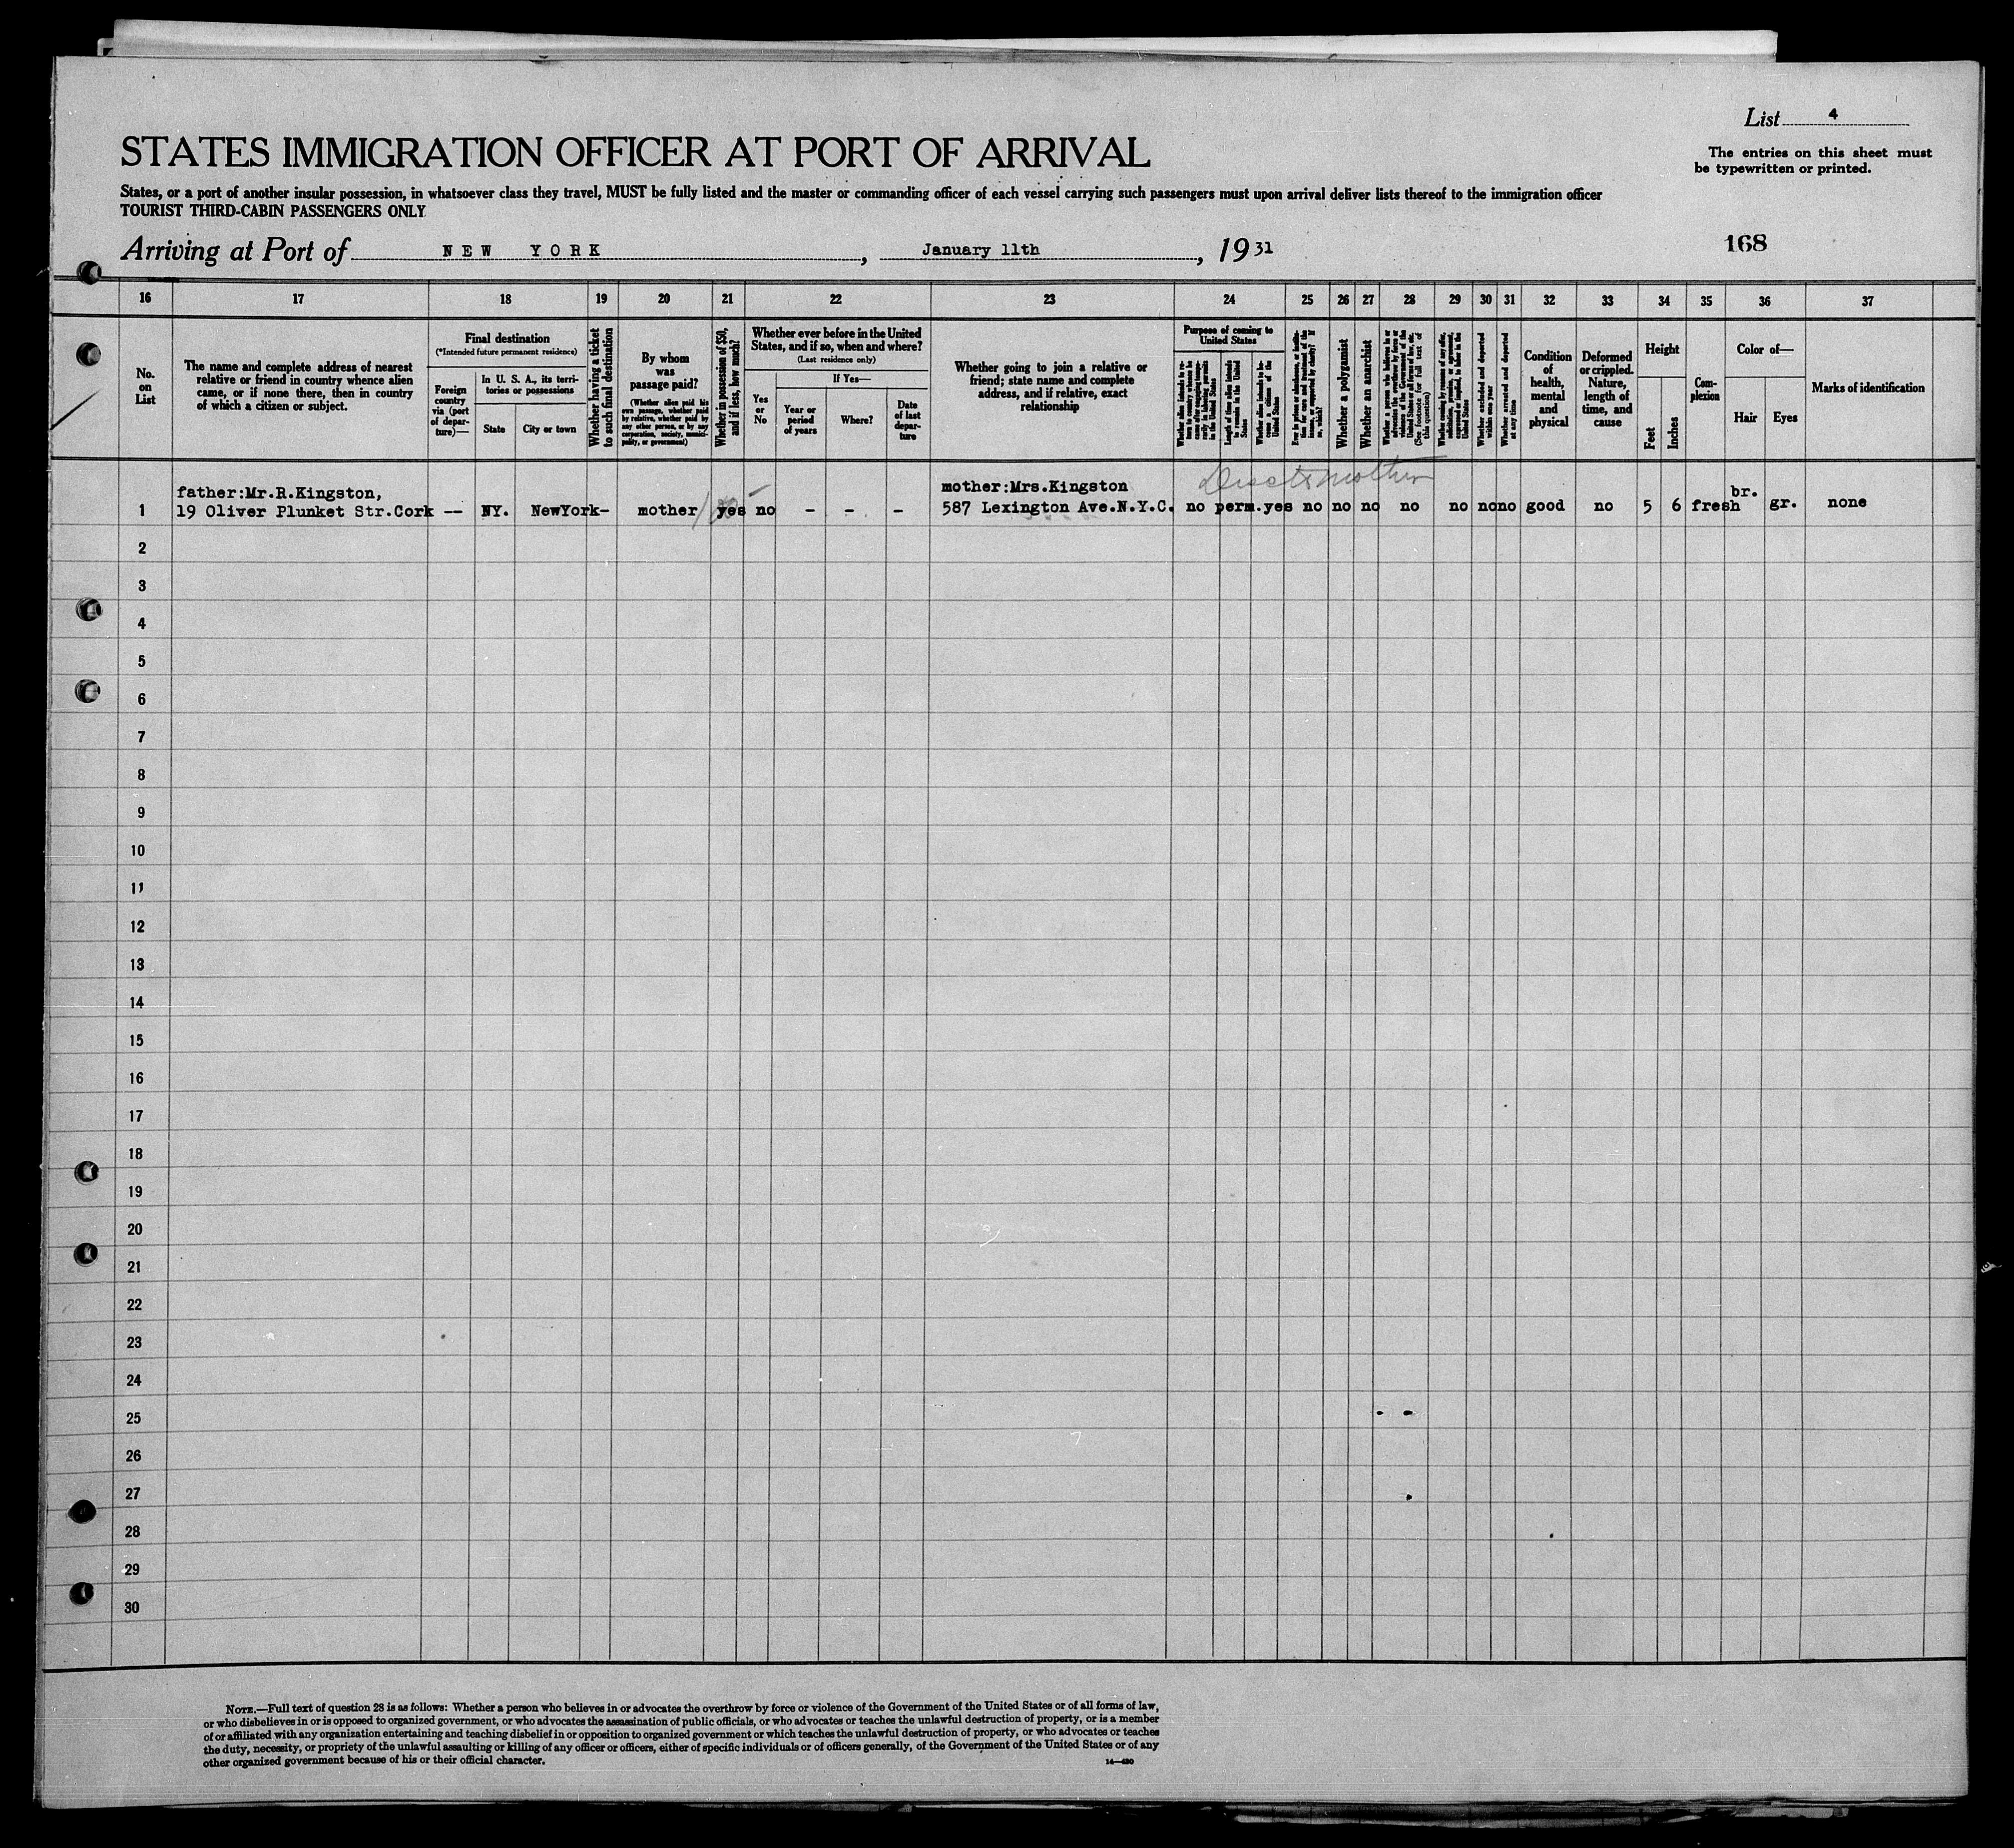 List 4
STATES IMMIGRATION OFFICER AT PORT OF ARRIVAL
The entries on this sheet must
be typewritten or printed.
States, or a port of another insular possession, in whatsoever class they travel, MUST be fully listed and the master or commanding officer of each vessel carrying such passengers must upon arrival deliver lists thereof to the immigration officer
TOURIST THIRD-CABIN PASSENGERS ONLY
Arriving at Port of NEW YORK, January 11th, 1931
168
16 17 18 19 20 21 22 23 24 25 26 27 28 29 30 31 32 33 34 35 36 37
No.
on
List
The name and complete address of nearest
relative or friend in country whence alien
came, or if none there, then in country
of which a citizen or subject.
Final destination
(*Intended future permanent residence)
Foreign
country
via (port
of depar-
ture)—
In U. S. A., its terri-
tories or possessions
State
City or town
Whether having a ticket
to such final destination
By whom
was
passage paid?
(Whether alien paid his
own passage, whether paid
by relative, whether paid by
any other person, or by any
corporation, society, munici-
pality, or government)
Whether in possession of $50,
and if less, how much?
Whether ever before in the United
States, and if so, when and where?
(Last residence only)
Yes
or
No
If Yes—
Year or
period
of years
Where?
Date
of last
depar-
ture
Whether going to join a relative or
friend; state name and complete
address, and if relative, exact
relationship
Purpose of coming to
United States
Length of time alien intends
to remain in the United
States
Whether alien intends to be-
come a citizen of the
United States
Whether a polygamist
Whether an anarchist
(See footnote for full text of
this question)
Whether excluded and deported
within one year
Whether arrested and deported
at any time
Condition
of
health,
mental
and
physical
Deformed
or crippled.
Nature,
length of
time, and
cause
Height
Feet
Inches
Com-
plexion
Color of—
Hair
Eyes
Marks of identification
father:Mr.R.Kingston,
mother:Mrs.Kingston
br.
1 19 Oliver Plunket Str.Cork -- NY. NewYork- mother yes no - - - 587 Lexington Ave.N.Y.C. no perm.yes no no no no no no no good no 5 6 fresh gr. none
2
3
4
5
6
7
8
9
10
11
12
13
14
15
16
17
18
19
20
21
22
23
24
25
26
27
28
29
30
NOTE.—Full text of question 28 is as follows: Whether a person who believes in or advocates the overthrow by force or violence of the Government of the United States or of all forms of law,
or who disbelieves in or is opposed to organized government, or who advocates the assassination of public officials, or who advocates or teaches the unlawful destruction of property, or is a member
of or affiliated with any organization entertaining and teaching disbelief in or opposition to organized government or which teaches the unlawful destruction of property, or who advocates or teaches
the duty, necessity, or propriety of the unlawful assaulting or killing of any officer or officers, either of specific individuals or of officers generally, of the Government of the United States or of any
other organized government because of his or their official character.